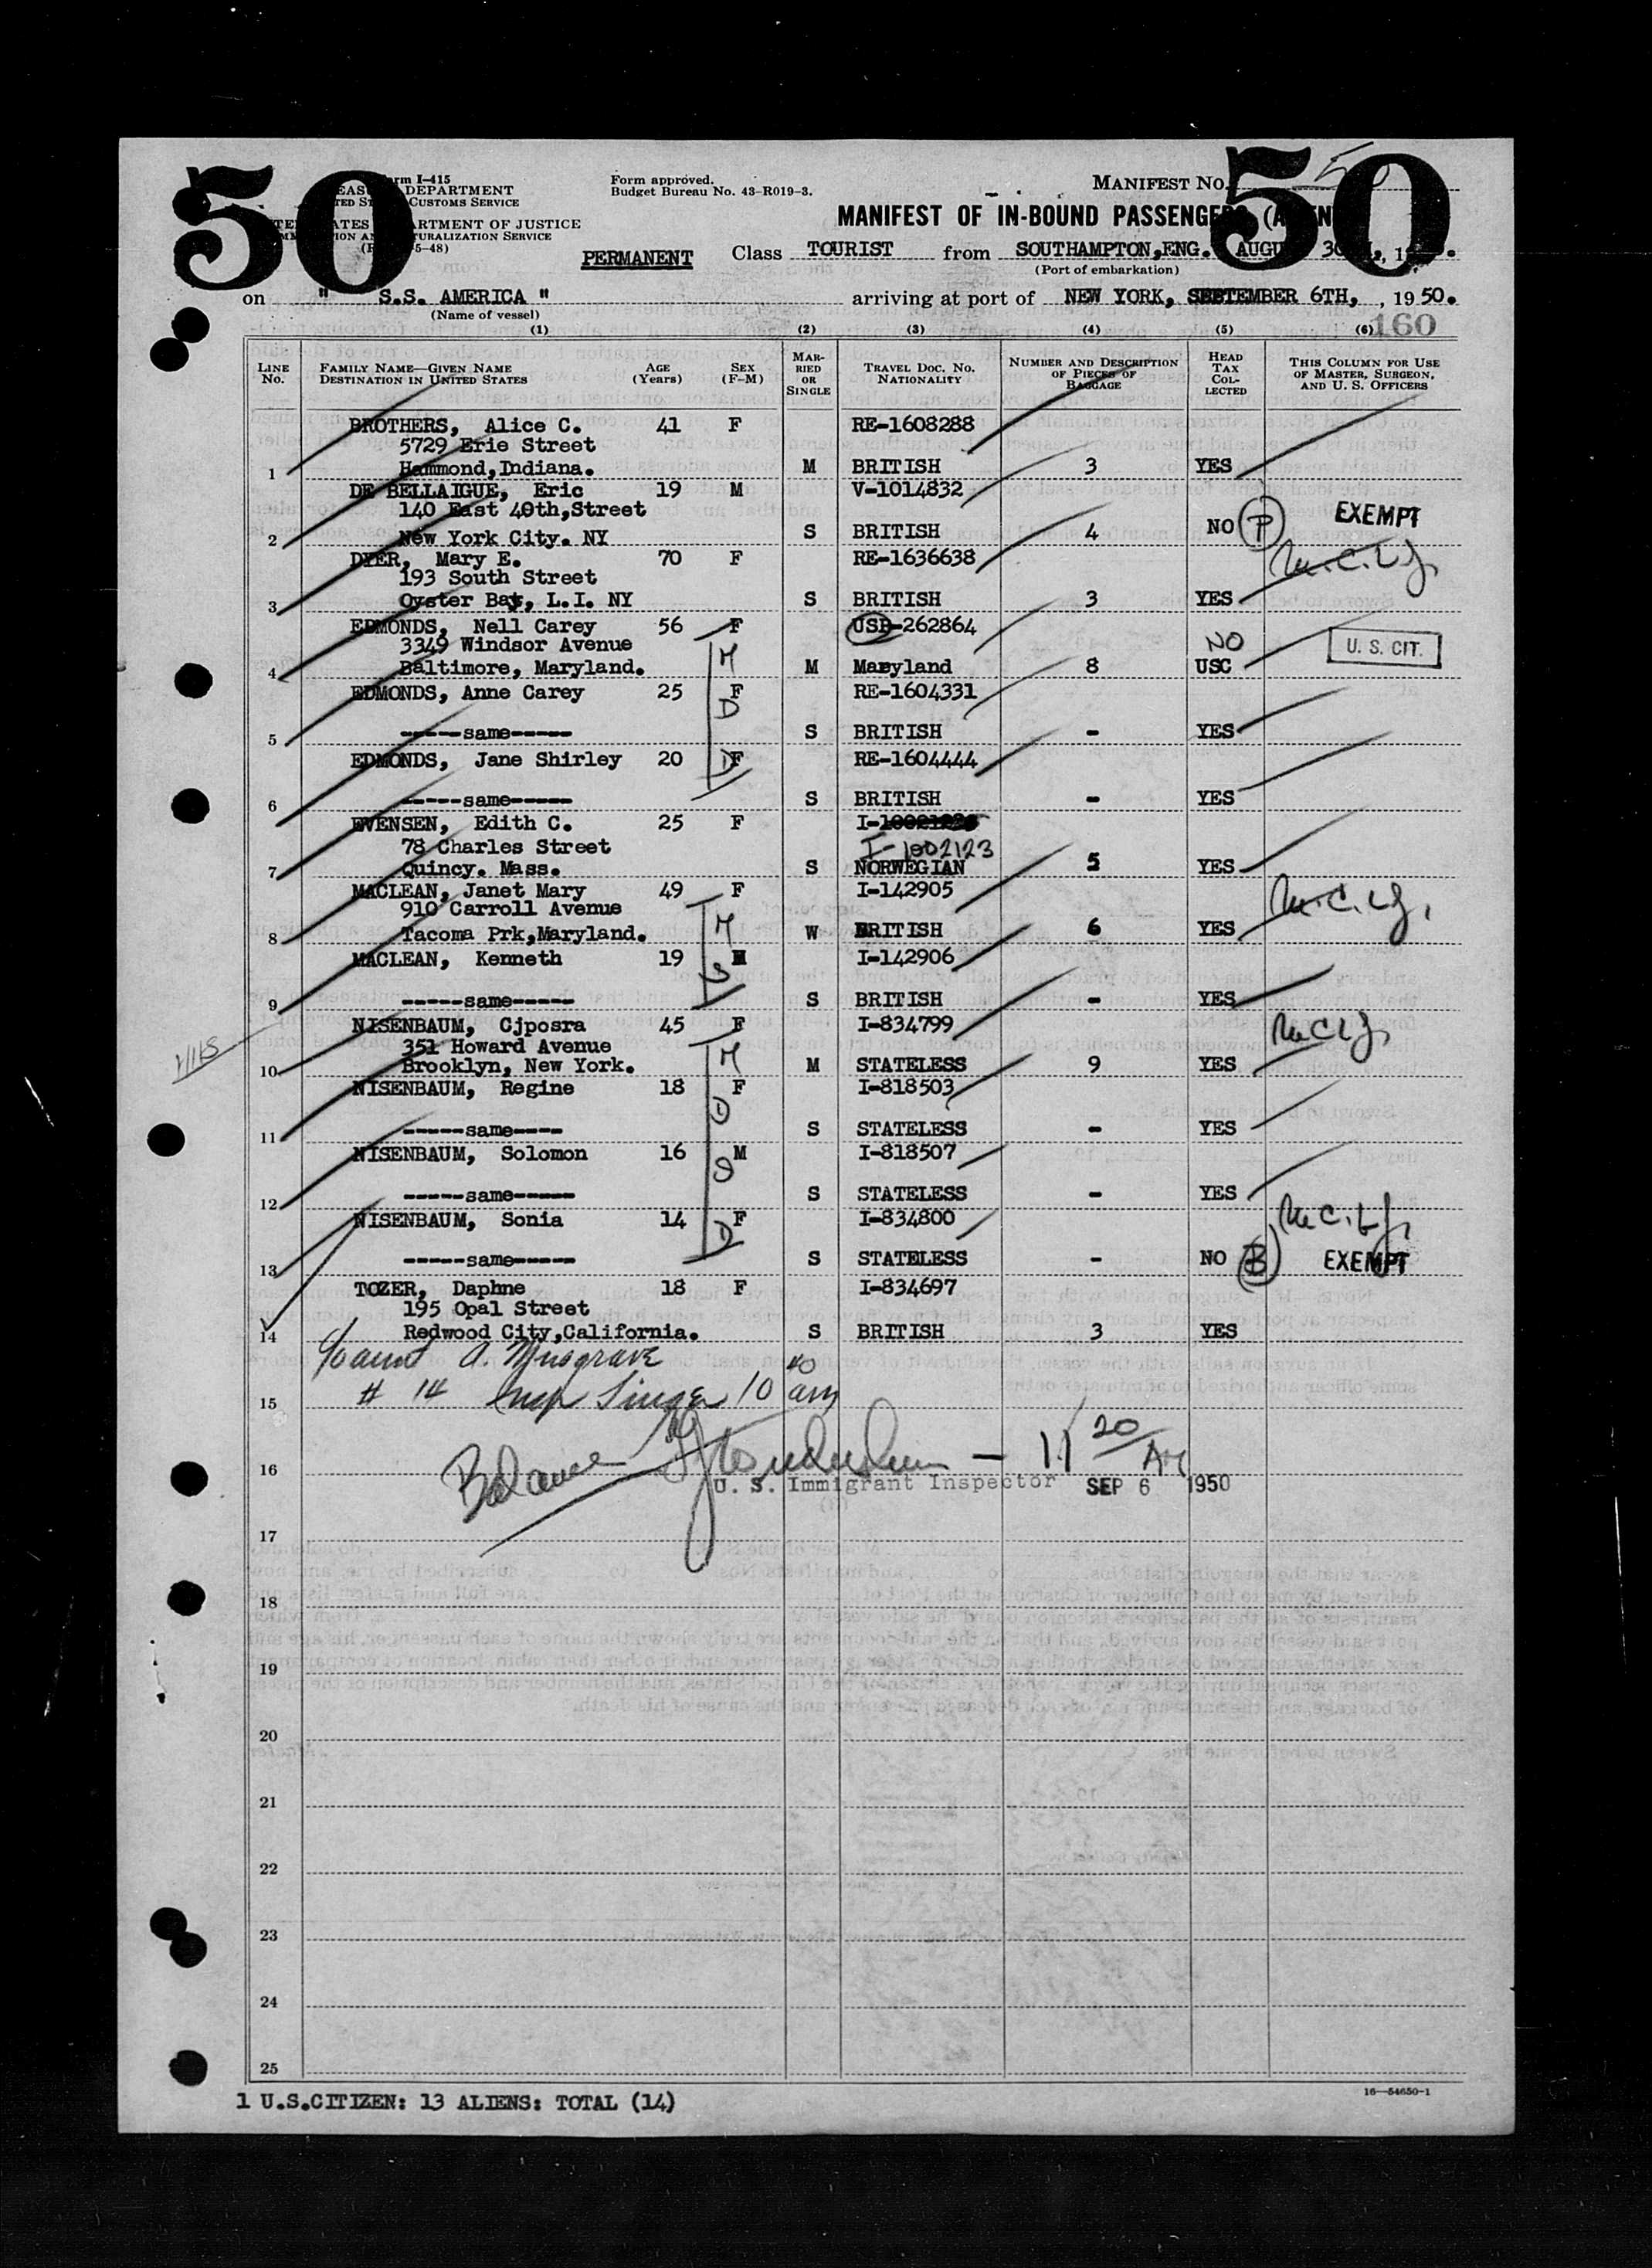 50
50
Form I-415
TREASURY DEPARTMENT
UNITED STATES CUSTOMS SERVICE
UNITED STATES DEPARTMENT OF JUSTICE
IMMIGRATION AND NATURALIZATION SERVICE
5-48)
Form approved.
Budget Bureau No. 43-R019-3.
MANIFEST NO. 50
MANIFEST OF IN-BOUND PASSENGERS (ALIENS)
PERMANENT Class TOURIST from SOUTHAMPTON,ENG. AUGUST 30TH, 19
(Port of embarkation)
on " S.S. AMERICA " arriving at port of NEW YORK, SEPTEMBER 6TH, , 1950.
(Name of vessel)
(1) (2) (3) (4) (5) (6) 160
LINE No. FAMILY NAME—GIVEN NAME DESTINATION IN UNITED STATES AGE (Years) SEX (F-M) MARRIED OR SINGLE TRAVEL DOC. NO. NATIONALITY NUMBER AND DESCRIPTION OF PIECES OF BAGGAGE HEAD TAX COLLECTED THIS COLUMN FOR USE OF MASTER, SURGEON, AND U. S. OFFICERS
BROTHERS, Alice C. 41 F RE-1608288
5729 Erie Street
1 Hammond,Indiana. M BRITISH 3 YES
DE BELLAIGUE, Eric 19 M V-1014832
140 East 40th,Street
2 New York City. NY S BRITISH 4 NO P EXEMPT
DYER, Mary E. 70 F RE-1636638
193 South Street
3 Oyster Bay, L.I. NY S BRITISH 3 YES
EDMONDS, Nell Carey 56 F USP-262864
3349 Windsor Avenue NO U. S. CIT.
4 Baltimore, Maryland. M M Maryland 8 USC
EDMONDS, Anne Carey 25 F RE-1604331
D
5 -----same----- S BRITISH - YES
EDMONDS, Jane Shirley 20 D F RE-1604444
6 -----same----- S BRITISH - YES
EVENSEN, Edith C. 25 F
78 Charles Street I-1002123
7 Quincy. Mass. S NORWEGIAN 5 YES
MACLEAN, Janet Mary 49 F I-142905
910 Carroll Avenue
8 Tacoma Prk,Maryland. M W BRITISH 6 YES
MACLEAN, Kenneth 19 M I-142906
S
9 -----same----- S BRITISH - YES
NISENBAUM, Cjposra 45 F I-834799
351 Howard Avenue
10 Brooklyn, New York. M M STATELESS 9 YES
NISENBAUM, Regine 18 F I-818503
D
11 -----same---- S STATELESS - YES
NISENBAUM, Solomon 16 M I-818507
S
12 -----same----- S STATELESS - YES
NISENBAUM, Sonia 14 F I-834800
D
13 -----same----- S STATELESS - NO B EXEMPT
TOZER, Daphne 18 F I-834697
195 Opal Street
14 Redwood City,California. S BRITISH 3 YES
c/o aunt A. Musgrave
15 # 14 10 40 am
16 Balance — 11 20 AM
U. S. Immigrant Inspector SEP 6 1950
17
18
19
20
21
22
23
24
25
16—54650-1
1 U.S.CITIZEN: 13 ALIENS: TOTAL (14)